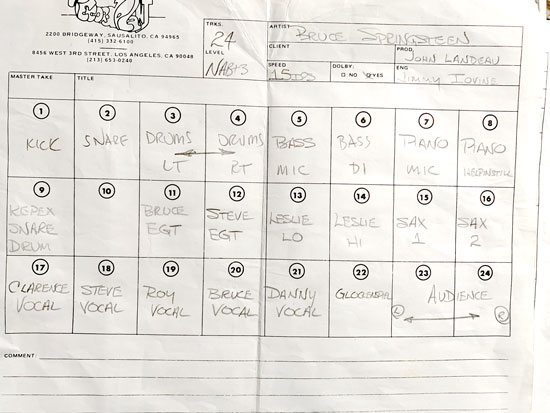 2200 BRIDGEWAY, SAUSALITO, CA 94965
(415) 332-6100
8456 WEST 3RD STREET, LOS ANGELES, CA 90048
(213) 653-0240
TRKS. 24
LEVEL
NAB+3
ARTIST BRUCE SPRINGSTEEN
CLIENT
PROD. JOHN LANDAU
SPEED 15 IPS
DOLBY: NO YES
ENG Jimmy Iovine
MASTER TAKE
TITLE
1 2 3 4 5 6 7 8
KICK
SNARE
DRUMS LT
DRUMS RT
BASS MIC
BASS DI
PIANO MIC
PIANO HELPINSTILL
9 10 11 12 13 14 15 16
KEPEX SNARE DRUM
BRUCE EGT
STEVE EGT
LESLIE LO
LESLIE HI
SAX 1
SAX 2
17 18 19 20 21 22 23 24
CLARENCE VOCAL
STEVE VOCAL
ROY VOCAL
BRUCE VOCAL
DANNY VOCAL
GLOCENSPIEL
AUDIENCE
L R
COMMENT